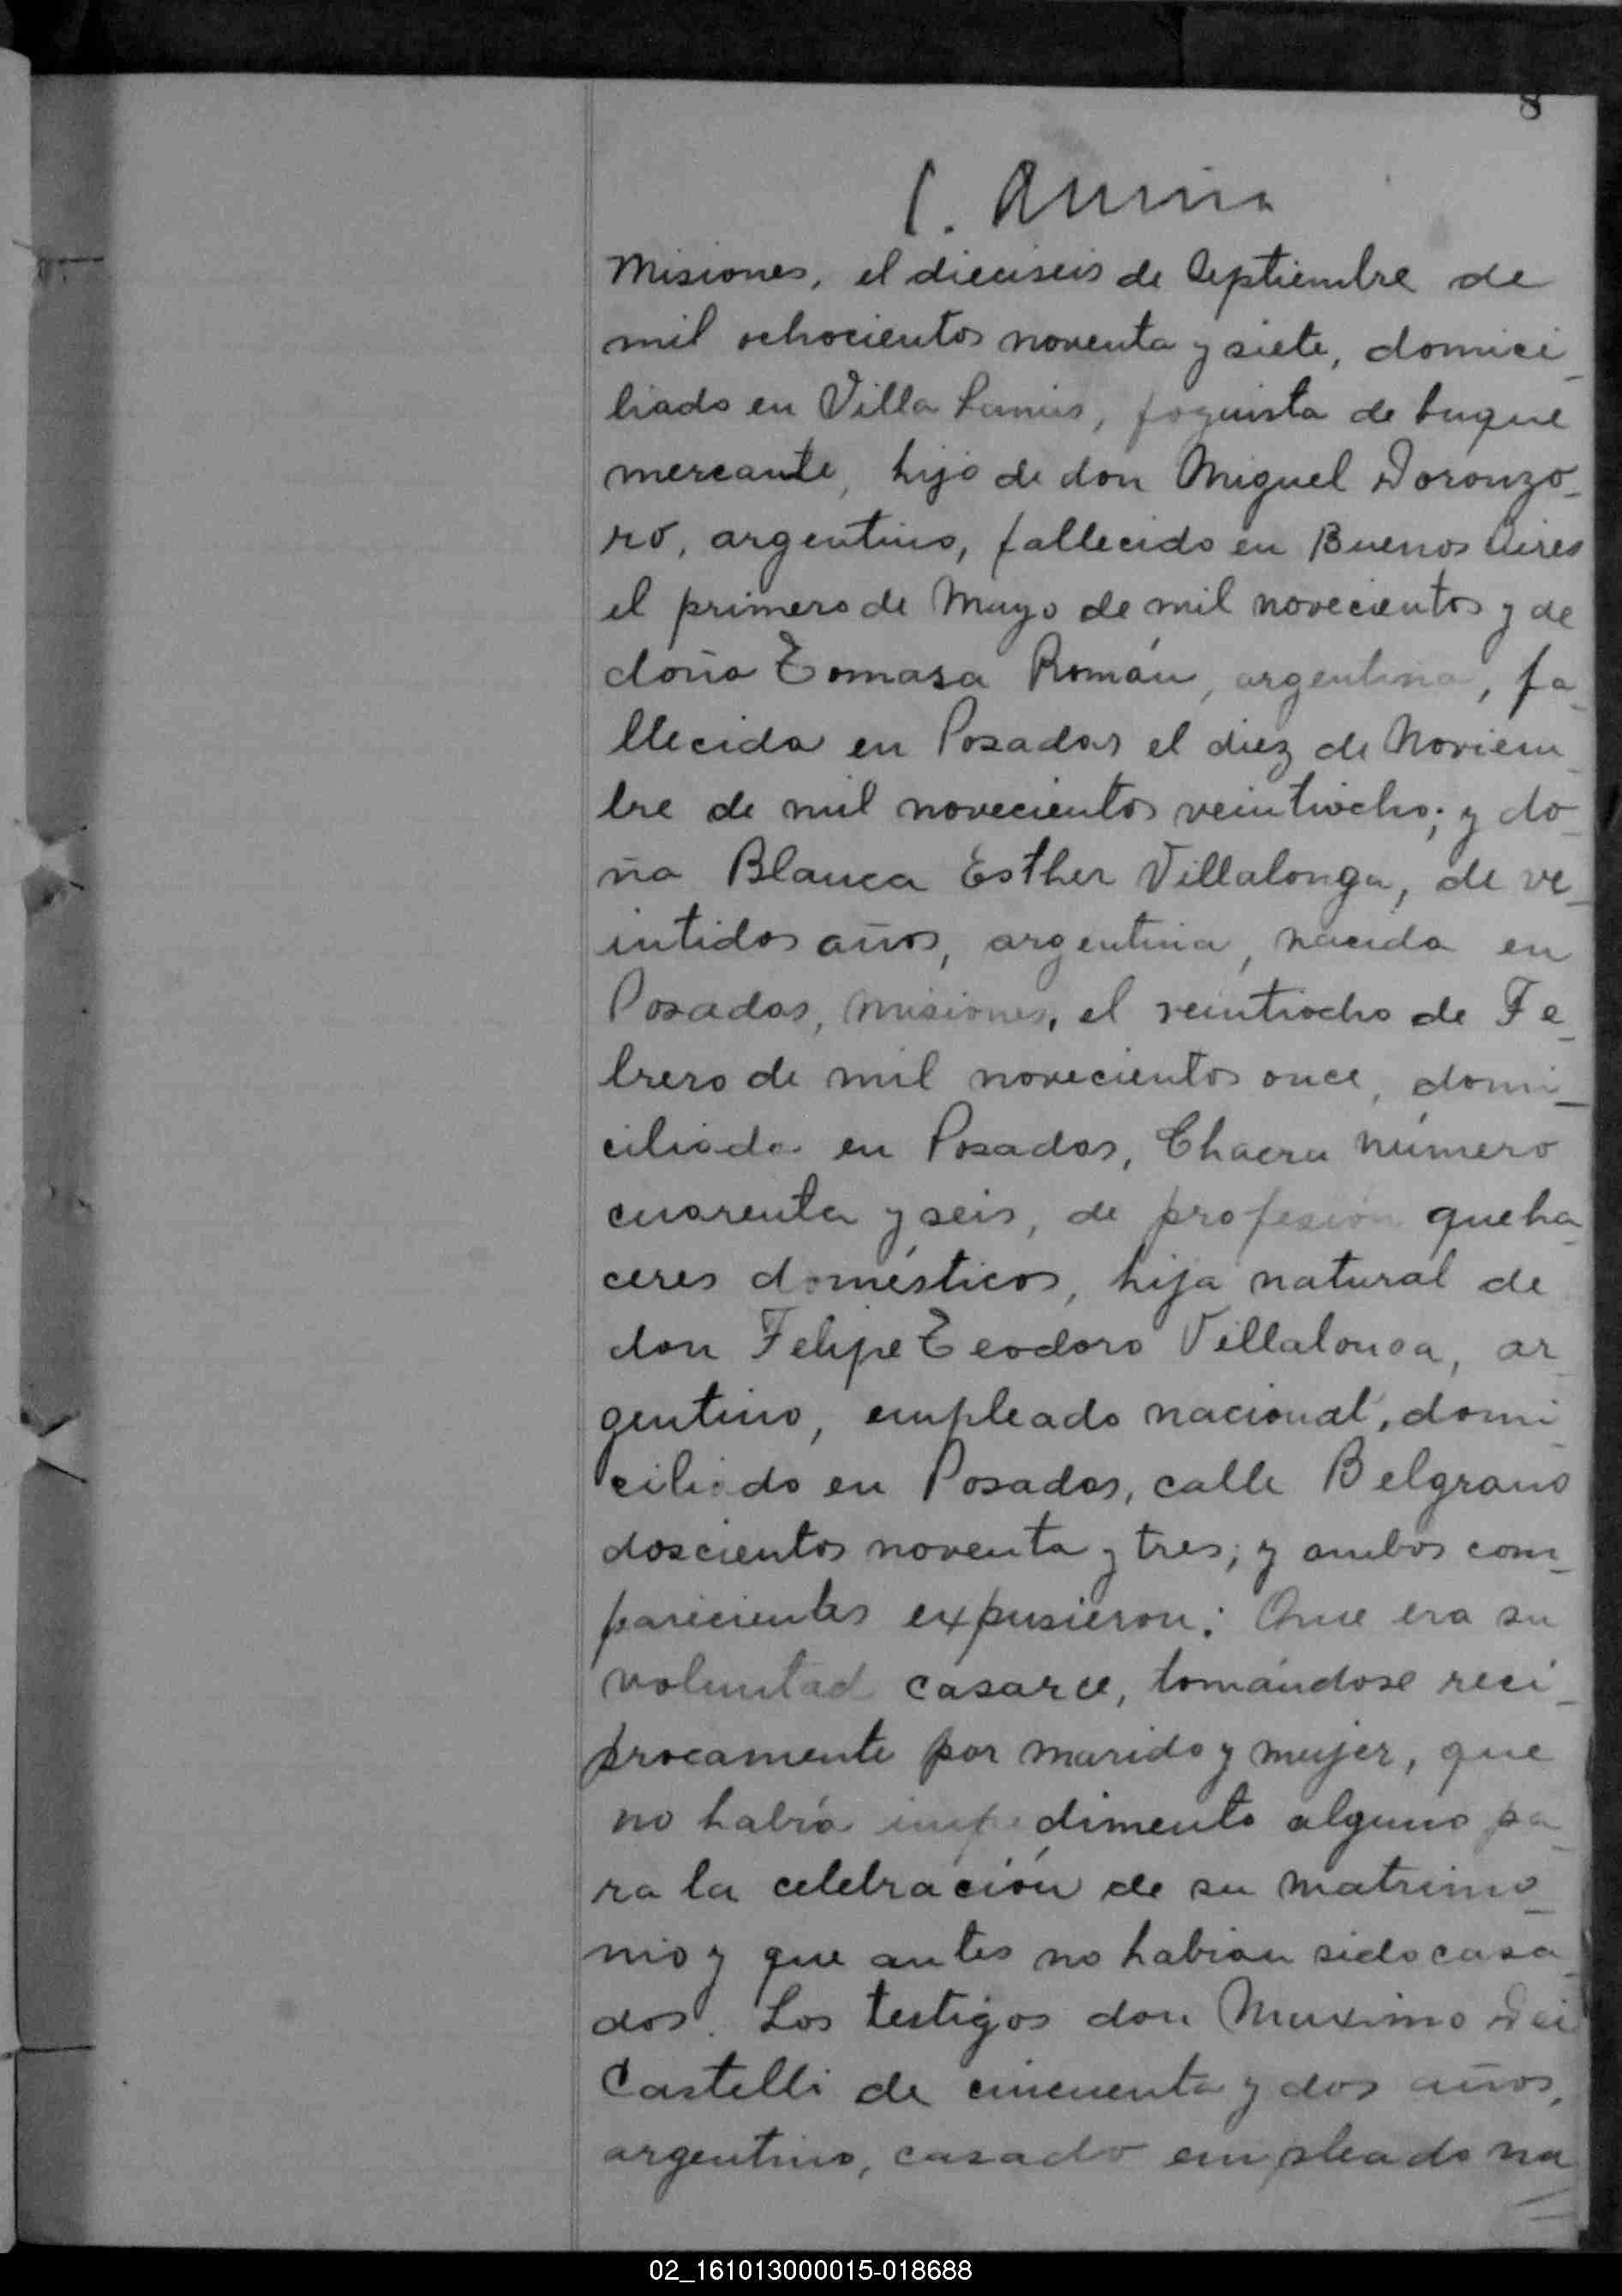 8
Misiones, el dieciseis de Septiembre de
mil ochocientos noventa y siete, domici_
liado en Villa Lanús, foguista de buque
mercante, hijo de don Miguel Doronzo_
ro, argentino, fallecido en Buenos Aires
el primero de Mayo de mil novecientos y de
doña Tomasa Román, argentina, fa_
llecida en Posadas el diez de Noviem_
bre de mil novecientos veintiocho; y do_
ña Blanca Esther Villalonga, de ve_
intidos años, argentina, nacida en
Posadas, Misiones, el veintiocho de Fe_
brero de mil novecientos once, domi_
ciliada en Posadas, Chacra número
cuarenta y seis, de profesión queha_
ceres domésticos, hija natural de
don Felipe Teodoro Villalonga, ar_
gentino, empleado nacional, domi_
ciliado en Posadas, calle Belgrano
doscientos noventa y tres; y ambos com_
parecientes expusieron: Que era su
voluntad casarce, tomándose reci_
procamente por marido y mujer, que
no había impedimento alguno pa_
ra la celebración de su matrimo_
nio y que antes no habian sido casa_
dos. Los testigos don Maximo Dei
Castelli de cincuenta y dos años,
argentino, casado empleado na
02_161013000015-018688